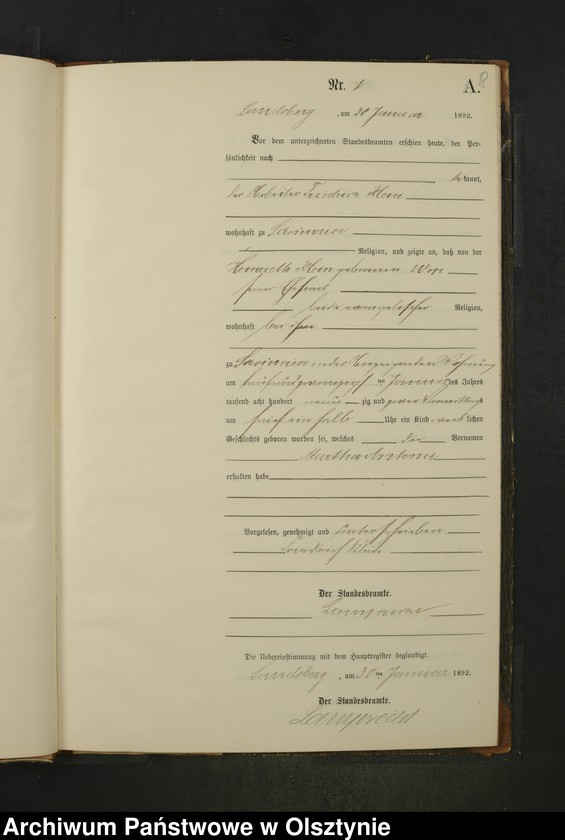 Nr.
A.
8
Landsberg, am 30 Januar 1892.
Vor dem unterzeichneten Standesbeamten erschien heute, der Per-
sönlichkeit nach
be kannt,
der Arbeiter Klein
wohnhaft zu
Religion, und zeigte an, daß von der
Henriette Klein geborenen
seiner Ehefrau
beide evangelischer Religion,
wohnhaft bei ihm
zu in des Anzeigenden Wohnung
am fünfundzwanzigsten Januar des Jahres
tausend acht hundert neun zig und zwei Vormittags
um fünf ein halb Uhr ein Kind weib lichen
Geschlechts geboren worden sei, welches die Vornamen
Martha Antonie
erhalten habe
Vorgelesen, genehmigt und unterschrieben
Friedrich Klein
Der Standesbeamte.
Lamprecht
Die Uebereinstimmung mit dem Hauptregister beglaubigt.
Landsberg, am 30 ten Januar 1892.
Der Standesbeamte.
Lamprecht
Archiwum Państwowe w Olsztynie